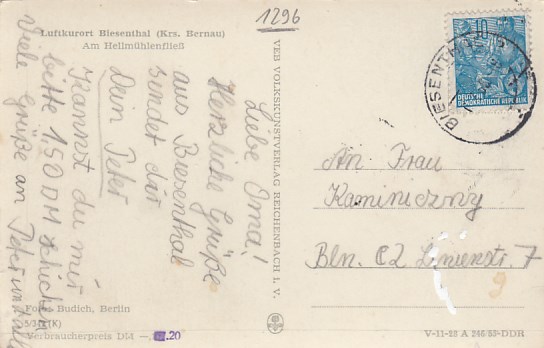 Luftkurort Biesenthal (Krs. Bernau)
Am Hellmühlenfließ
1296
Liebe Oma!
Herzliche Grüße
aus Biesenthal
sendet dir
Dein Peter
Kannst du mir
bitte 1,50 DM schicken
Viele Grüße an Peter und
VEB VOLKSKUNSTVERLAG REICHENBACH I. V.
10
DEUTSCHE
DEMOKRATISCHE REPUBLIK
BIESENTHAL
An Frau
Kaminiczny
Bln. C2 Linienstr. 7
9
Foto: Budich, Berlin
Verbraucherpreis DM —.20
V-11-28 A 246/63-DDR